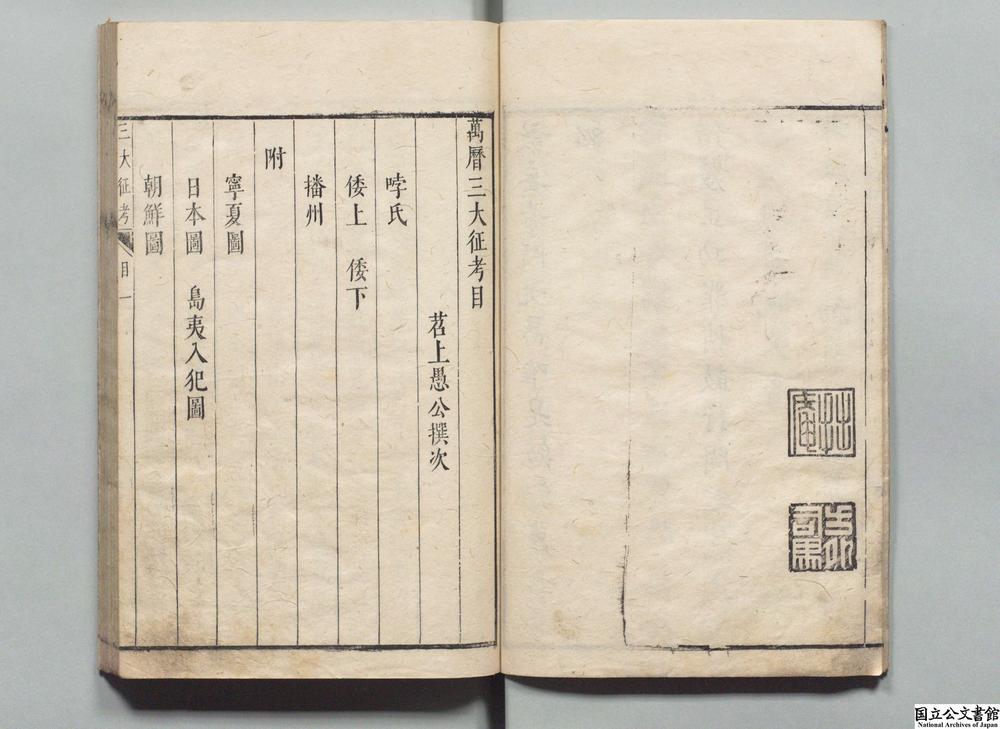 萬曆三大征考目
茗上愚公撰次
哱氏
倭上 倭下
播州
附
寧夏圖
日本圖 島夷入犯圖
朝鮮圖
三大征考 目 一
国立公文書館
National Archives of Japan